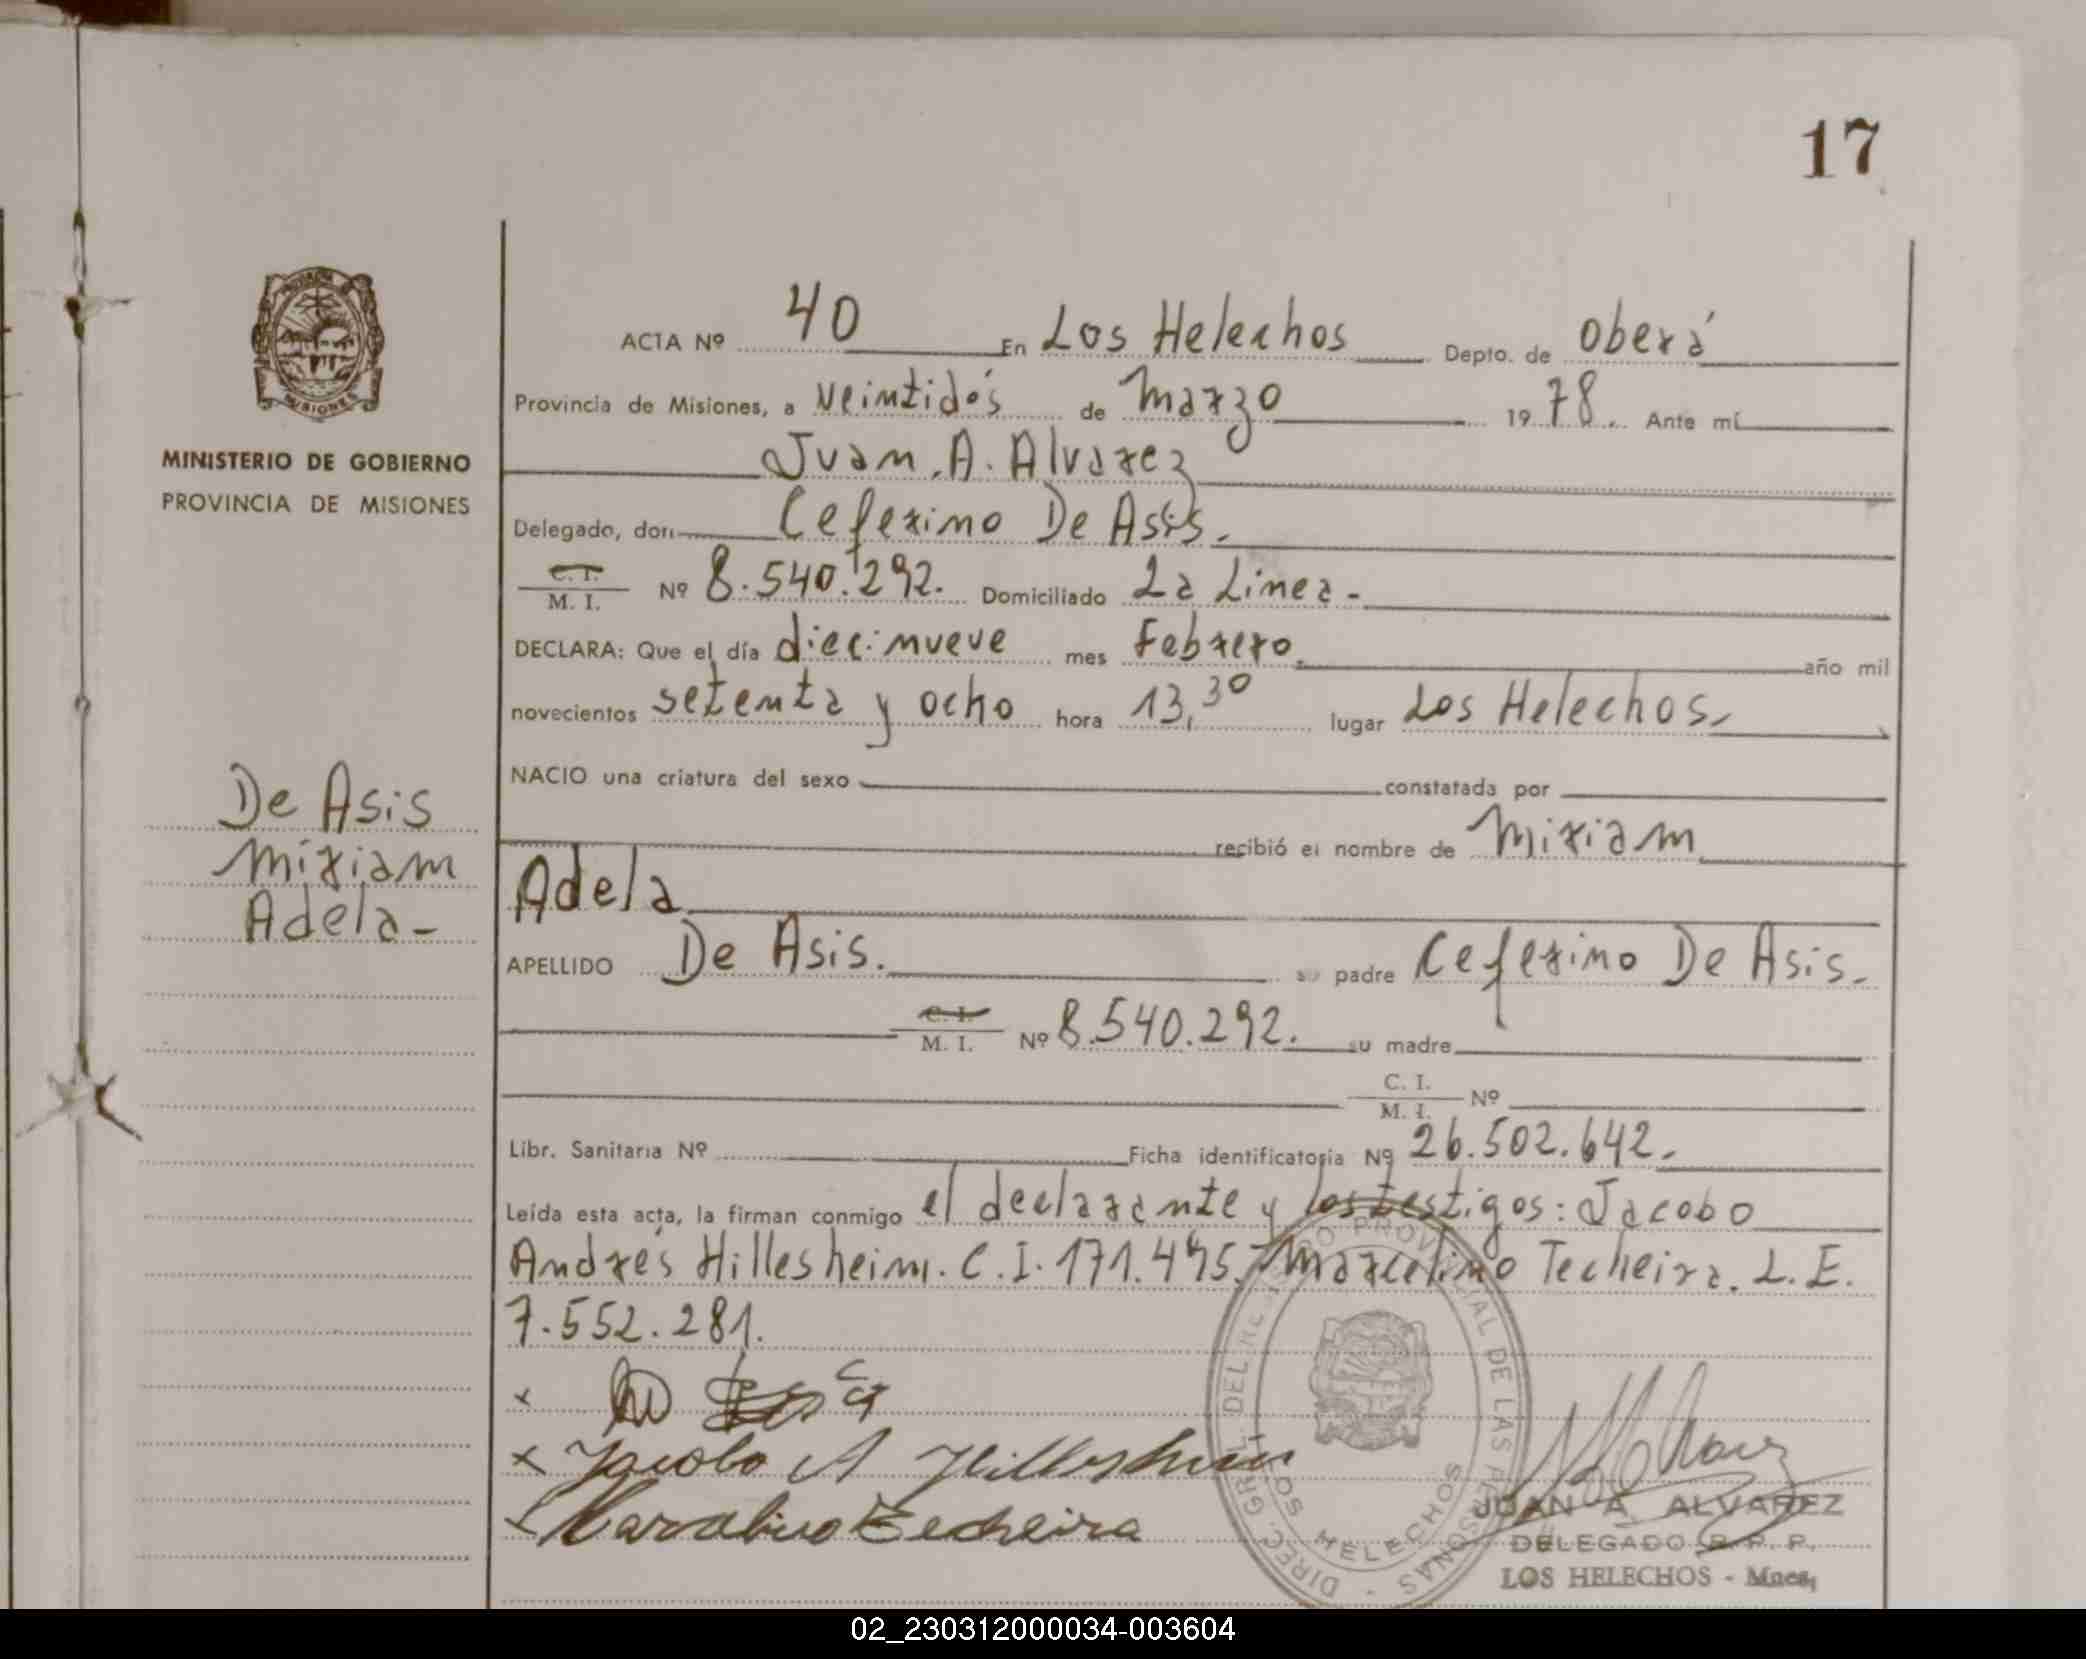 17
PROVINCIA DE
MISIONES
MINISTERIO DE GOBIERNO
PROVINCIA DE MISIONES
De Asis
Miriam
Adela-
ACTA Nº 40 En Los Helechos Depto. de Oberá
Provincia de Misiones, a veintidós de Marzo 1978. Ante mí
Juan. A. Alvarez
Delegado, don Ceferino De Asis.
C. I.
M. I. Nº 8.540.292. Domiciliado La Linea-
DECLARA: Que el día diecinueve mes Febrero. año mil
novecientos setenta y ocho hora 13,30 lugar Los Helechos.
NACIO una criatura del sexo constatada por
recibió el nombre de Miriam
Adela
APELLIDO De Asis. su padre Ceferino De Asis.
C. I.
M. I. Nº 8.540.292. su madre
C. I.
M. I. Nº
Libr. Sanitaria Nº Ficha identificatoria Nº 26.502.642.
Leída esta acta, la firman conmigo el declarante y los testigos: Jacobo
Andrés Hillesheim. C.I. 171.495. Marcelino Techeira. L.E.
7.552.281.
x
x Jacobo A Hillesheim
x Marcelino Techeira
DIREC. GRL. DEL REGISTRO PROVINCIAL DE LAS PERSONAS -
LOS HELECHOS
JUAN A ALVAREZ
DELEGADO R. P. P.
LOS HELECHOS - Mnes,
02_230312000034-003604